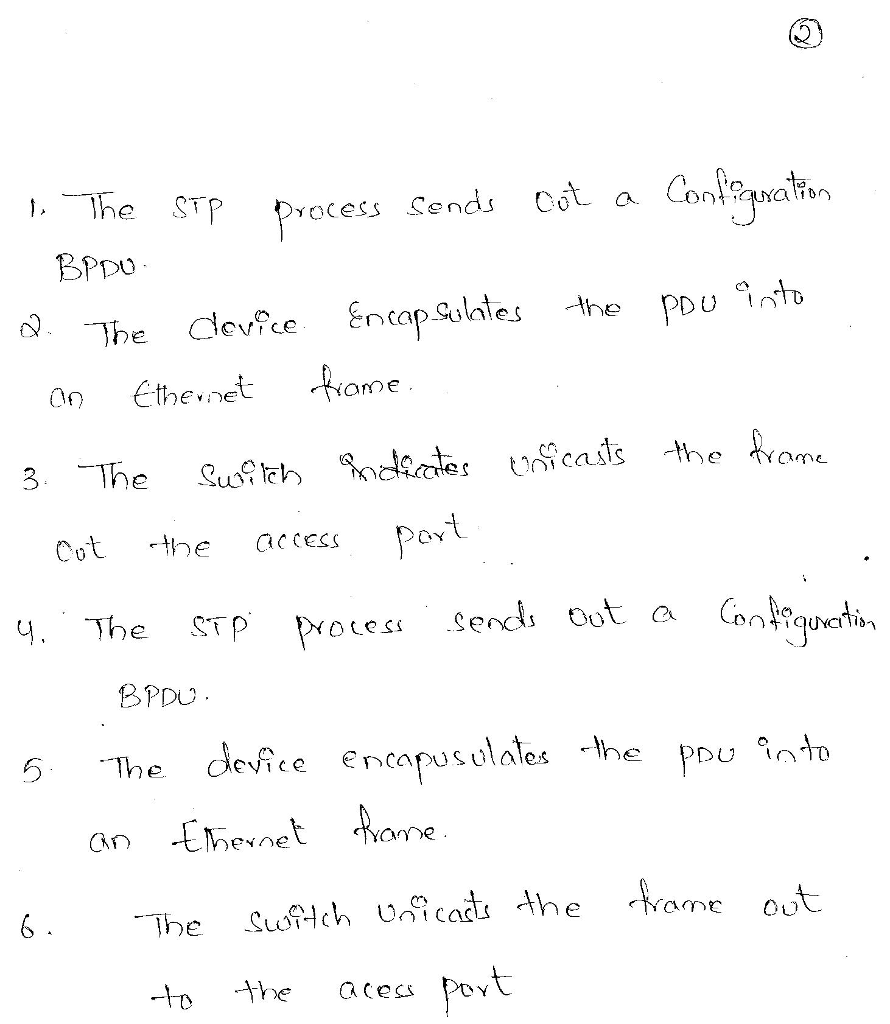 2
1. The STP process sends out a Configuration
BPDU.
2. The device Encapsulates the PDU into
an Ethernet frame.
3. The Switch indicates unicasts the frame
out the access port
4. The STP process sends out a Configuration
BPDU.
5. The device encapusulates the PDU into
an Ethernet frame.
6. The switch unicasts the frame out
to the acess port